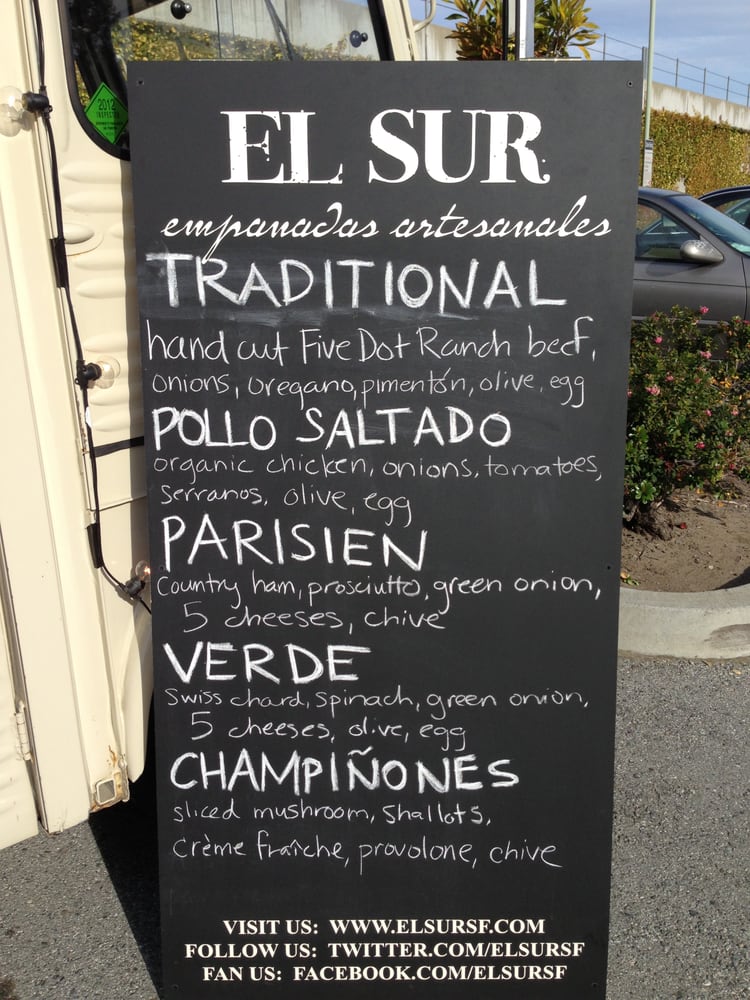 2012
EL SUR
empanadas artesanales
TRADITIONAL
hand cut Five Dot Ranch beef,
onions, oregano, pimentón, olive, egg
POLLO SALTADO
organic chicken, onions, tomatoes,
serranos, olive, egg
PARISIEN
Country ham, prosciutto, green onion,
5 cheeses, chive
VERDE
Swiss chard, spinach, green onion,
5 cheeses, olive, egg
CHAMPIÑONES
sliced mushroom, shallots,
crème fraîche, provolone, chive
VISIT US: WWW.ELSURSF.COM
FOLLOW US: TWITTER.COM/ELSURSF
FAN US: FACEBOOK.COM/ELSURSF